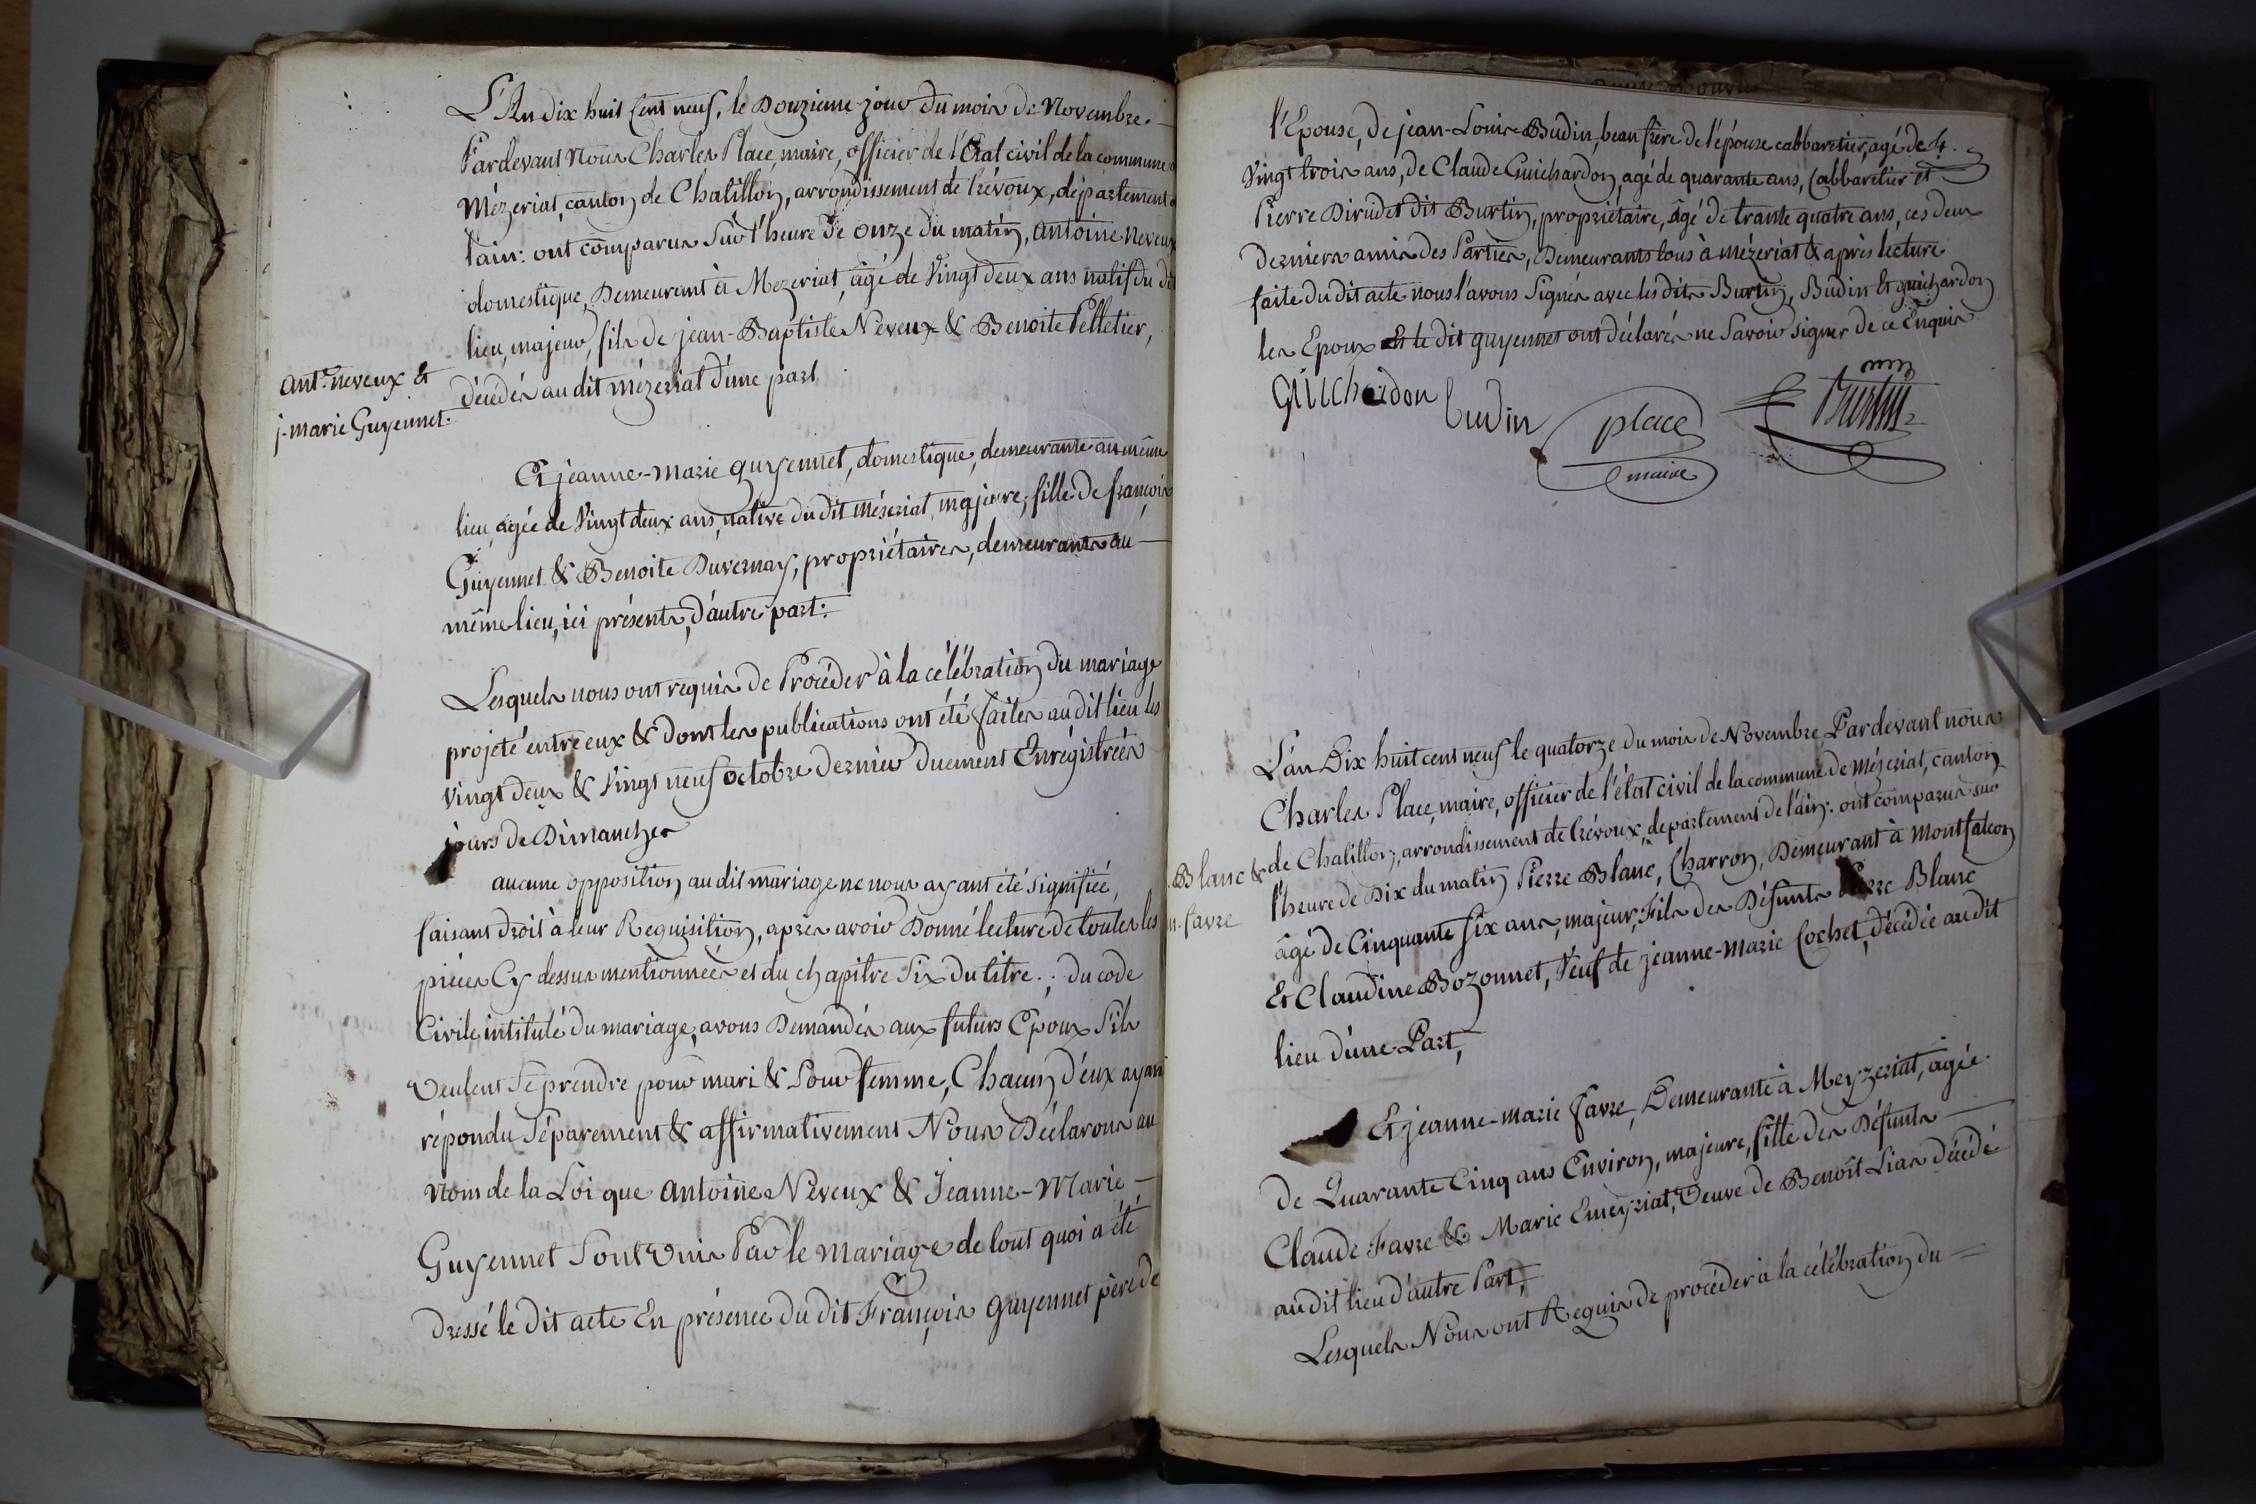 L'An dix huit Cent neuf, le Douzieme jour du mois de Novembre.
Pardevant Nous Charles Place, maire, officier de l'Etat civil de la commune
Mézeriat, canton de Chatillon, arrondissement de Trévoux, département
l'ain: ont comparus sur l'heure de onze du matin, antoine Neveux
domestique, Demeurant à Mezeriat, âgé de Vingt deux ans natif du dit
lieu, majeur, fils de jean-Baptiste Neveux & Benoite Pelletier,
décédés au dit mézeriat d'une part
ant.e neveux Et
j-marie Guyennet.
Et jeanne-marie guyennet, domestique, demeurante au même
lieu, agée de Vingt deux ans, native du dit Mézeriat, majeure, fille de françois
Guyennet & Benoite Duvernay, propriétaires, demeurants au
même lieu, ici présents, d'autre part.
Lesquels nous ont requis de Procéder à la célébration du mariage
projeté entre eux & dont les publications ont été faites au dit lieu les
Vingt deux & Vingt neuf octobre dernier duement Enrégistrées
jours de Dimanches
aucune opposition au dit mariage ne nous ayant été signifiée,
faisant droit à leur Requisition, après avoir Donné lecture de toutes les
pièces Cy dessus mentionnées et du chapitre Six du titre . ; du code
Civile intitulé du mariage, avons Demandés aux futurs Epoux S'ils
Veulent Se prendre pour mari & pour femme, Chacun d'eux ayant
répondu Séparement & affirmativement Nous Déclarons au
Nom de la Loi que Antoine Neveux & Jeanne-Marie
Guyennet Sont Unis Par le Mariage de tout quoi a été
dressé le dit acte En présence du dit François Guyennet père de
l'Epouse, de jean-Louis Budin, beau frère de l'épouse cabbaretier, agé de 4.
Vingt trois ans, de Claude Guichardon, agé de quarante ans, Cabbaretier et
Pierre Dirudet dit Burtin, propriétaire, âgé de trante quatre ans, ces deux
derniers amis des Parties, Demeurants tous à mézeriat & après lecture
faite du dit acte nous l'avons Signés avec les dits Burtin, Budin Et guichardon
les Epoux Et le dit guyennet ont déclarés ne Savoir signer de ce Enquis
GUICHardon
budin
place
maire
Burtin
L'an Dix huit cent neuf le quatorze du mois de Novembre Pardevant nous
Charles Place, maire, officier de l'état civil de la commune de Mézeriat, canton
de Chatillon, arrondissement de trévoux, département de l'ain: ont comparus sur
Blanc &
l'heure de Dix du matin Pierre Blanc, Charron, Demeurant à Montfalcon
m. favre
âgé de Cinquante Six ans, majeur, Fils des Défunts Pierre Blanc
Et Claudine Bozonnet, Veuf de jeanne-Marie Cochet, décédée au dit
lieu d'une Part,
Et jeanne-marie favre, Demeurante à Meyzeriat, agée
de Quarante Cinq ans Environ, majeure, fille des Défunts
Claude Favre & Marie Emeyriat, Veuve de Benoît Lias décédé
au dit lieu d'autre Part,
Lesquels Nous ont Requis de procéder à la célébration du